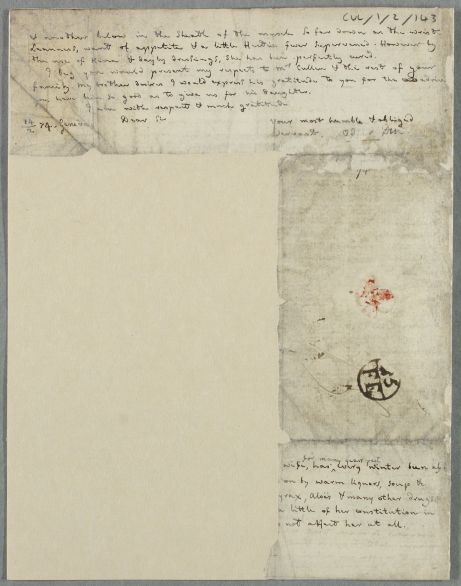 CUL/1/2/143
& another below in the Sheath of the muscle so far down as the wrist
Leanness, want of appetite & a little Hectic fever Supervened. However by
the use of & daily dressings, She has been perfectly cured.
I beg you would present my respects to Mrs Cullen & the rest of your
family. My brother desires I would express his gratitude to you for the advice
you have been so good as to give us for his daughter.
I am with respect & much gratitude
24/2 74. Geneva Dear Sir your most humble & obliged
Servant
74
for many years past
wife, has, every winter been
on by warm liquors, soups &
Aloes & many other drugs
a little of her constitution in
not affect her at all.